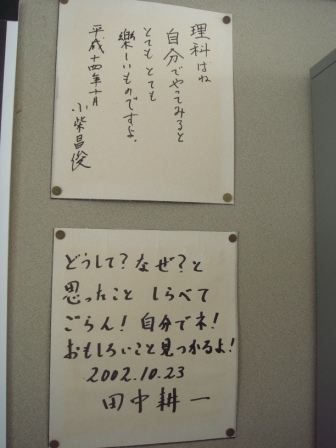 理科はね
自分でやってみると
とても とても
楽しいものですよ.
平成十四年十月
小柴昌俊
どうして?なぜ?と
思ったこと しらべて
ごらん! 自分でネ!
おもしろいこと見つかるよ!
2002.10.23
田中耕一